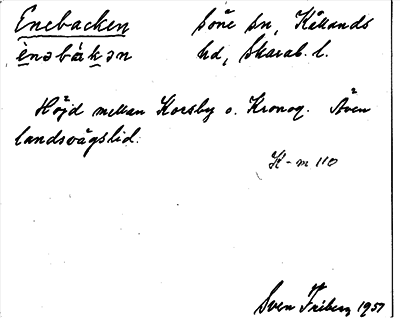 Enebacken Söne sn, Kållands
ènəbákən hd, Skarab. l.
Höjd mellan Korsby o. Kronog. Även
landsvägslid.
K-m 110
Sven Friberg 1957